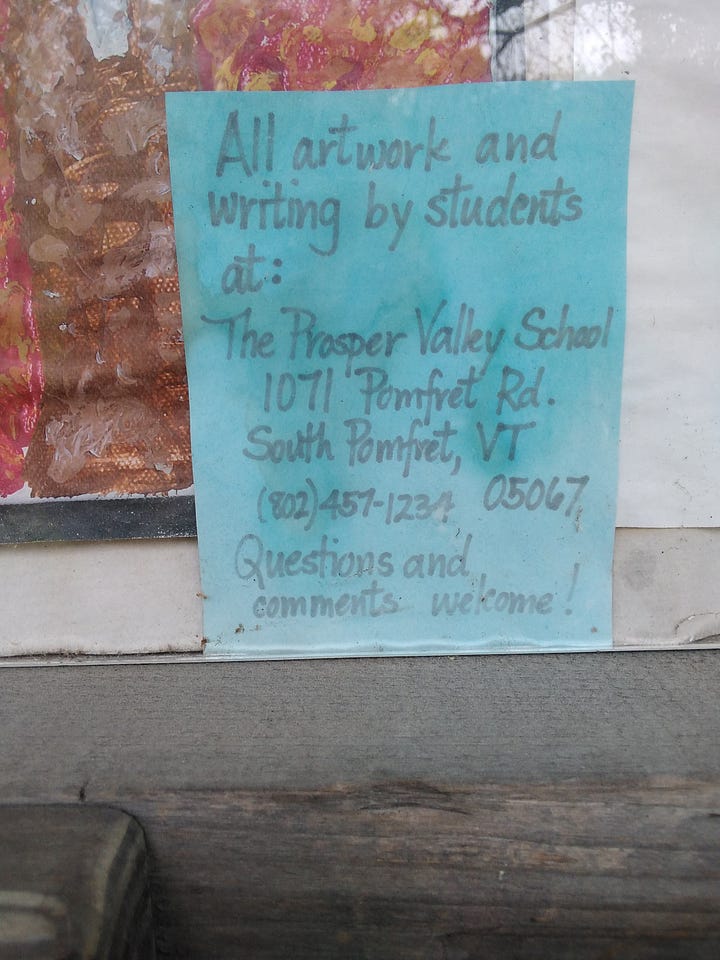 All artwork and
writing by students
at:
The Prosper Valley School
1071 Pomfret Rd.
South Pomfret, VT
(802)457-1234 05067
Questions and
comments welcome!